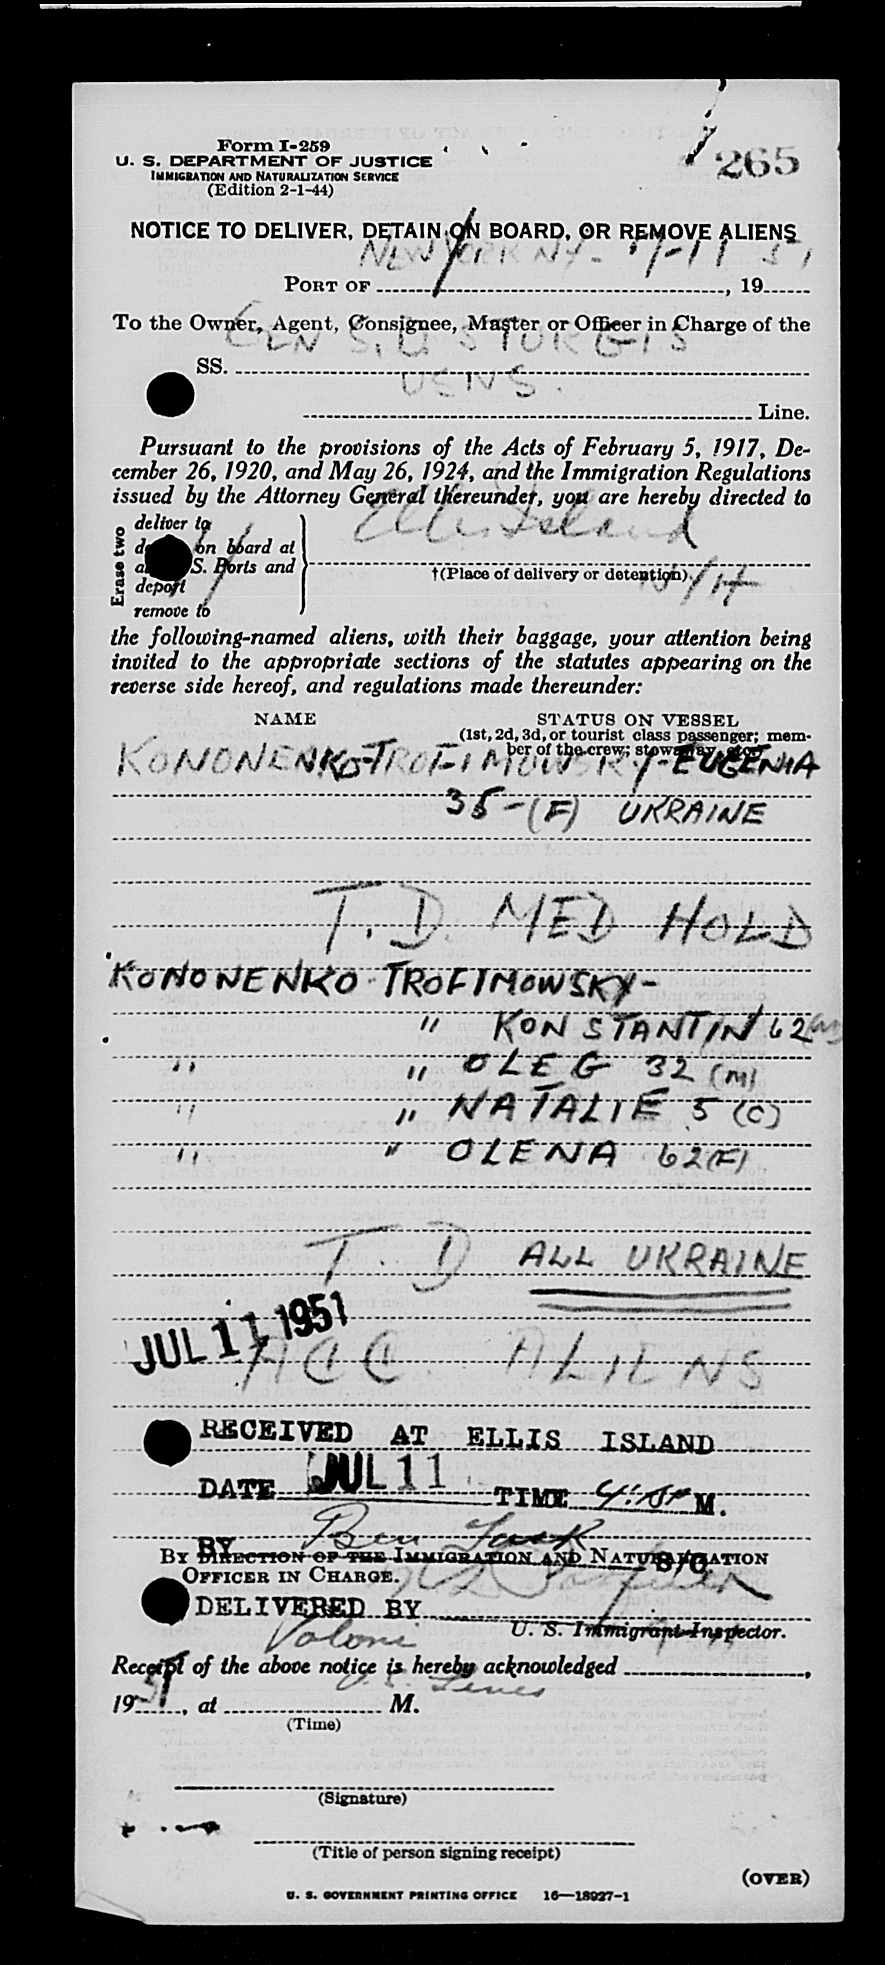 Form I-259
U. S. DEPARTMENT OF JUSTICE
IMMIGRATION AND NATURALIZATION SERVICE
(Edition 2-1-44)
265
NOTICE TO DELIVER, DETAIN ON BOARD, OR REMOVE ALIENS
NEW YORK NY - 7-11 51
PORT OF , 19
To the Owner, Agent, Consignee, Master or Officer in Charge of the
GEN S. D. STURGIS
SS.
USNS.
Line.
Pursuant to the provisions of the Acts of February 5, 1917, De-
cember 26, 1920, and May 26, 1924, and the Immigration Regulations
issued by the Attorney General thereunder, you are hereby directed to
Ellis Island
Erase two
deliver to
on board at
S. Ports and
deport
remove to
†(Place of delivery or detention)
the following-named aliens, with their baggage, your attention being
invited to the appropriate sections of the statutes appearing on the
reverse side hereof, and regulations made thereunder:
NAME STATUS ON VESSEL
(1st, 2d, 3d, or tourist class passenger; mem-
ber of the crew; stowaway, etc.)
KONONENKO-TROFIMOWSKY-EUGENIA
35-(F) UKRAINE
T. D. MED HOLD
KONONENKO TROFIMOWSKY-
" KONSTANTIN 62 (M)
" " OLEG 32 (M)
" " NATALIE 5 (C)
" " OLENA 62 (F)
T. D. ALL UKRAINE
JUL 11 1951
ACC. ALIENS
RECEIVED AT ELLIS ISLAND
DATE JUL 11 TIME M.
BY Ben
BY DIRECTION OF THE IMMIGRATION AND NATURALIZATION
OFFICER IN CHARGE.
DELIVERED BY
U. S. Immigrant Inspector.
Receipt of the above notice is hereby acknowledged ,
U.S. Lines
1951, at M.
(Time)
(Signature)
(Title of person signing receipt)
(OVER)
U. S. GOVERNMENT PRINTING OFFICE 16—18927-1